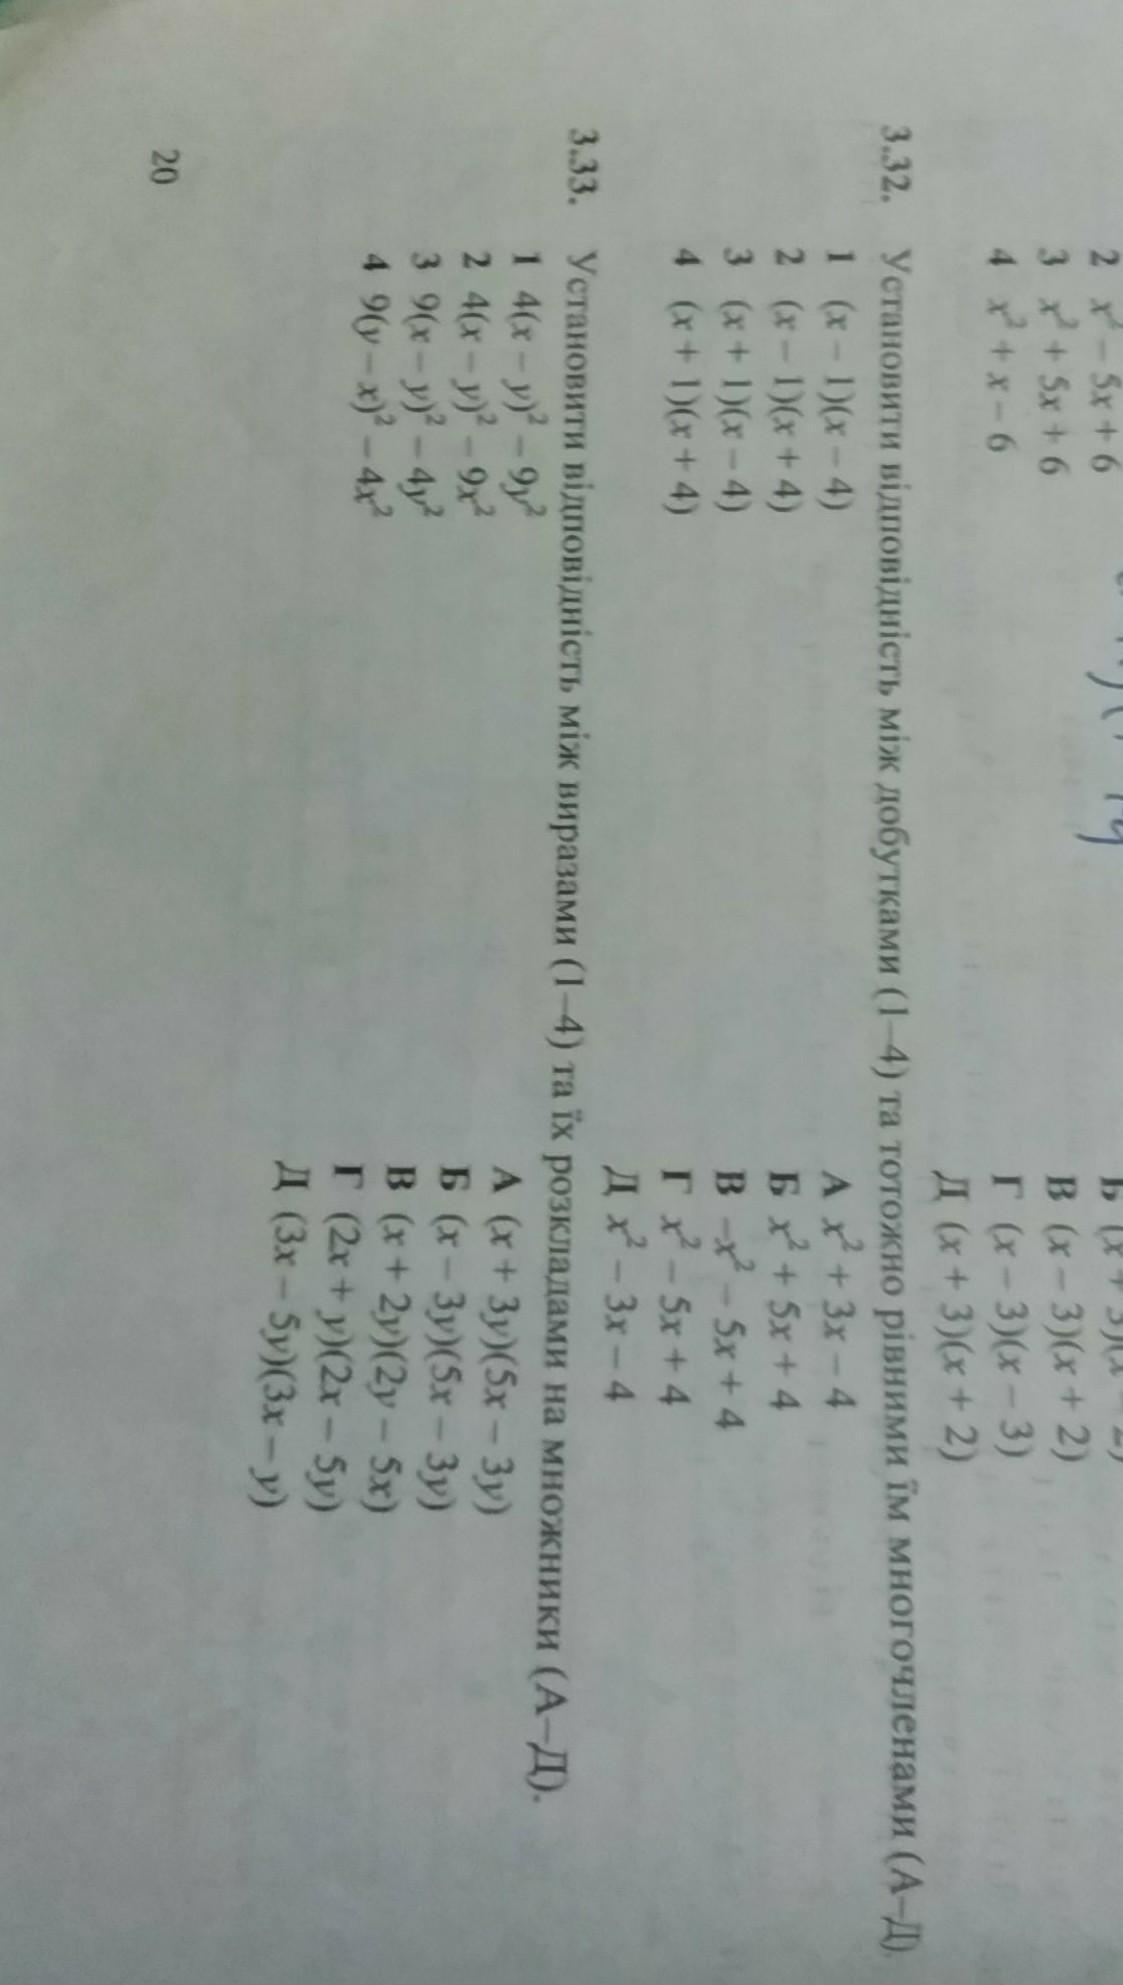 2 x² − 5x + 6
3 x² + 5x + 6
В (x − 3)(x + 2)
4 x² + x − 6
Г (x − 3)(x − 3)
Д (x + 3)(x + 2)
3.32. Установити відповідність між добутками (1–4) та тотожно рівними їм многочленами (А–Д).
1 (x − 1)(x − 4)
А x² + 3x − 4
2 (x − 1)(x + 4)
Б x² + 5x + 4
3 (x + 1)(x − 4)
В −x² − 5x + 4
4 (x + 1)(x + 4)
Г x² − 5x + 4
Д x² − 3x − 4
3.33. Установити відповідність між виразами (1–4) та їх розкладами на множники (А–Д).
1 4(x − y)² − 9y²
А (x + 3y)(5x − 3y)
2 4(x − y)² − 9x²
Б (x − 3y)(5x − 3y)
3 9(x − y)² − 4y²
В (x + 2y)(2y − 5x)
4 9(y − x)² − 4x²
Г (2x + y)(2x − 5y)
Д (3x − 5y)(3x − y)
20